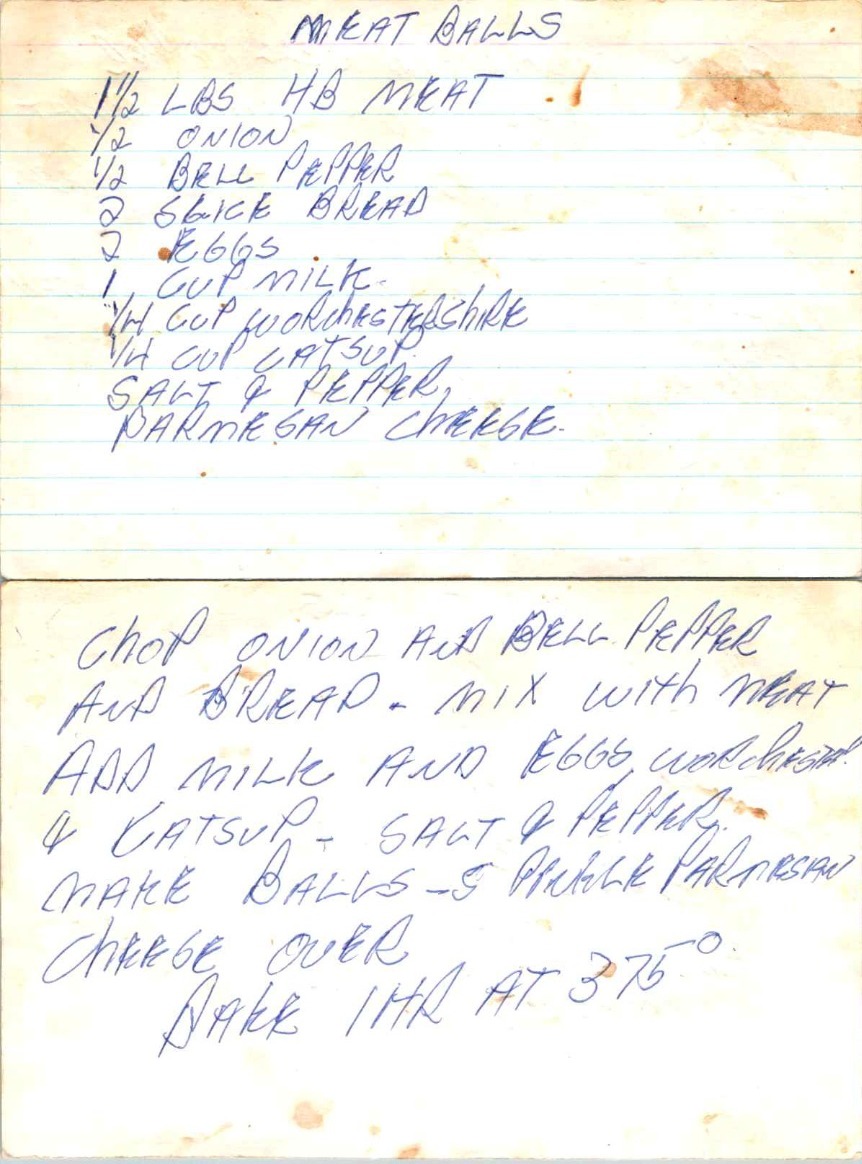 MEAT BALLS
1 1/2 LBS HB MEAT
1/2 ONION
1/2 BELL PEPPER
2 SLICE BREAD
2 EGGS
1 CUP MILK.
1/4 CUP WORChESTERShIRE
1/4 CUP CATSUP.
SALT & PEPPER,
PARMESAN ChEESE.
ChOP ONION AND BELL PEPPER
AND BREAD - MIX WITh MEAT
ADD MILK AND EGGS WORChESTER.
& KATSUP - SALT & PEPPER.
MAKE BALLS - SPRINKLE PARMESAN
ChEESE OVER
BAKE 1 HR AT 375°.